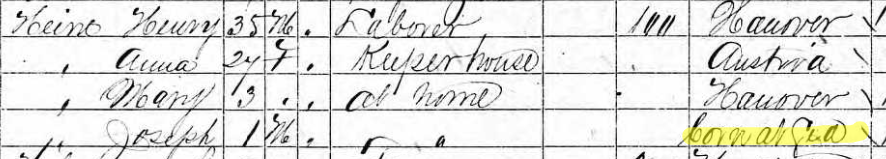 Heine Henry 35 M . Laborer 100 Hanover
" Anna 27 F . Keeps house Austria
" Mary 3 . . at home Hanover
" Joseph 1 M . " " born at Sea